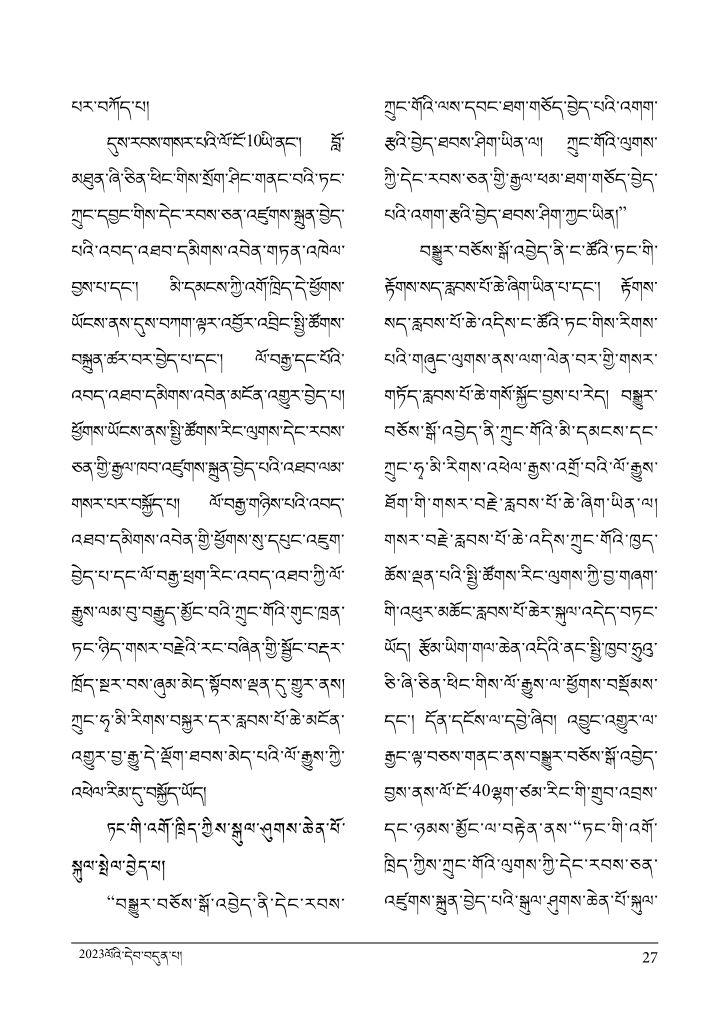 པར་བཀོད་པ།
དུས་རབས་གསར་པའི་ལོ་ངོ་10ཡི་ནང་། བློ་
མཐུན་ཞི་ཅིན་ཕིང་གིས་སྲོག་ཤིང་གནང་བའི་ཏང་
ཀྲུང་དབྱང་གིས་དེང་རབས་ཅན་འཛུགས་སྐྲུན་བྱེད་
པའི་འབད་འཐབ་དམིགས་འབེན་གཏན་འཁེལ་
བྱས་པ་དང་། མི་དམངས་ཀྱི་འགོ་ཁྲིད་དེ་ཕྱོགས་
ཡོངས་ནས་དུས་བཀག་ལྟར་འབྱོར་འབྲིང་སྤྱི་ཚོགས་
བསྐྲུན་ཚར་བར་བྱེད་པ་དང་། ལོ་བརྒྱ་དང་པོའི་
འབད་འཐབ་དམིགས་འབེན་མངོན་འགྱུར་བྱེད་པ།
ཕྱོགས་ཡོངས་ནས་སྤྱི་ཚོགས་རིང་ལུགས་དེང་རབས་
ཅན་གྱི་རྒྱལ་ཁབ་འཛུགས་སྐྲུན་བྱེད་པའི་འཐབ་ལམ་
གསར་པར་བསྐྱོད་པ། ལོ་བརྒྱ་གཉིས་པའི་འབད་
འཐབ་དམིགས་འབེན་གྱི་ཕྱོགས་སུ་དཔུང་འཇུག་
བྱེད་པ་དང་ལོ་བརྒྱ་ཕྲག་རིང་འབད་འཐབ་ཀྱི་ལོ་
རྒྱུས་ལམ་བུ་བརྒྱུད་མྱོང་བའི་ཀྲུང་གོའི་གུང་ཁྲན་
ཏང་ཉིད་གསར་བརྗེའི་རང་བཞིན་གྱི་སྦྱོང་བརྡར་
ཁྲོད་སྔར་བས་ཞུམ་མེད་སྟོབས་ལྡན་དུ་གྱུར་ནས།
ཀྲུང་ཧྭ་མི་རིགས་བསྐྱར་དར་རླབས་པོ་ཆེ་མངོན་
འགྱུར་བྱ་རྒྱུ་དེ་ལྡོག་ཐབས་མེད་པའི་ལོ་རྒྱུས་ཀྱི་
འཕེལ་རིམ་དུ་བསྐྱོད་ཡོད།
ཏང་གི་འགོ་ཁྲིད་ཀྱིས་སྐུལ་ཤུགས་ཆེན་པོ་
སྐུལ་སྤེལ་བྱེད་པ།
“བསྒྱུར་བཅོས་སྒོ་འབྱེད་ནི་དེང་རབས་
ཀྲུང་གོའི་ལས་དབང་ཐག་གཅོད་བྱེད་པའི་འགག་
རྩའི་བྱེད་ཐབས་ཤིག་ཡིན་ལ། ཀྲུང་གོའི་ལུགས་
ཀྱི་དེང་རབས་ཅན་གྱི་རྒྱལ་ཕམ་ཐག་གཅོད་བྱེད་
པའི་འགག་རྩའི་བྱེད་ཐབས་ཤིག་ཀྱང་ཡིན།”
བསྒྱུར་བཅོས་སྒོ་འབྱེད་ནི་ང་ཚོའི་ཏང་གི་
རྟོགས་སད་རླབས་པོ་ཆེ་ཞིག་ཡིན་པ་དང་། རྟོགས་
སད་རླབས་པོ་ཆེ་འདིས་ང་ཚོའི་ཏང་གིས་རིགས་
པའི་གཞུང་ལུགས་ནས་ལག་ལེན་བར་གྱི་གསར་
གཏོད་རླབས་པོ་ཆེ་གསོ་སྐྱོང་བྱས་པ་རེད། བསྒྱུར་
བཅོས་སྒོ་འབྱེད་ནི་ཀྲུང་གོའི་མི་དམངས་དང་
ཀྲུང་ཧྭ་མི་རིགས་འཕེལ་རྒྱས་འགྲོ་བའི་ལོ་རྒྱུས་
ཐོག་གི་གསར་བརྗེ་རླབས་པོ་ཆེ་ཞིག་ཡིན་ལ།
གསར་བརྗེ་རླབས་པོ་ཆེ་འདིས་ཀྲུང་གོའི་ཁྱད་
ཆོས་ལྡན་པའི་སྤྱི་ཚོགས་རིང་ལུགས་ཀྱི་བྱ་གཞག་
གི་འཕུར་མཆོང་རླབས་པོ་ཆེར་སྐུལ་འདེད་བཏང་
ཡོད། རྩོམ་ཡིག་གལ་ཆེན་འདིའི་ནང་སྤྱི་ཁྱབ་ཧྲུའུ་
ཅི་ཞི་ཅིན་ཕིང་གིས་ལོ་རྒྱུས་ལ་ཕྱོགས་བསྡོམས་
དང་། དོན་དངོས་ལ་དབྱེ་ཞིབ། འབྱུང་འགྱུར་ལ་
རྒྱང་ལྟ་བཅས་གནང་ནས་བསྒྱུར་བཅོས་སྒོ་འབྱེད་
བྱས་ནས་ལོ་ངོ་40ལྷག་ཙམ་རིང་གི་གྲུབ་འབྲས་
དང་ཉམས་མྱོང་ལ་བརྟེན་ནས་“ཏང་གི་འགོ་
ཁྲིད་ཀྱིས་ཀྲུང་གོའི་ལུགས་ཀྱི་དེང་རབས་ཅན་
འཛུགས་སྐྲུན་བྱེད་པའི་སྒུལ་ཤུགས་ཆེན་པོ་སྐུལ་
2023ལོའི་དེབ་བདུན་པ།
27